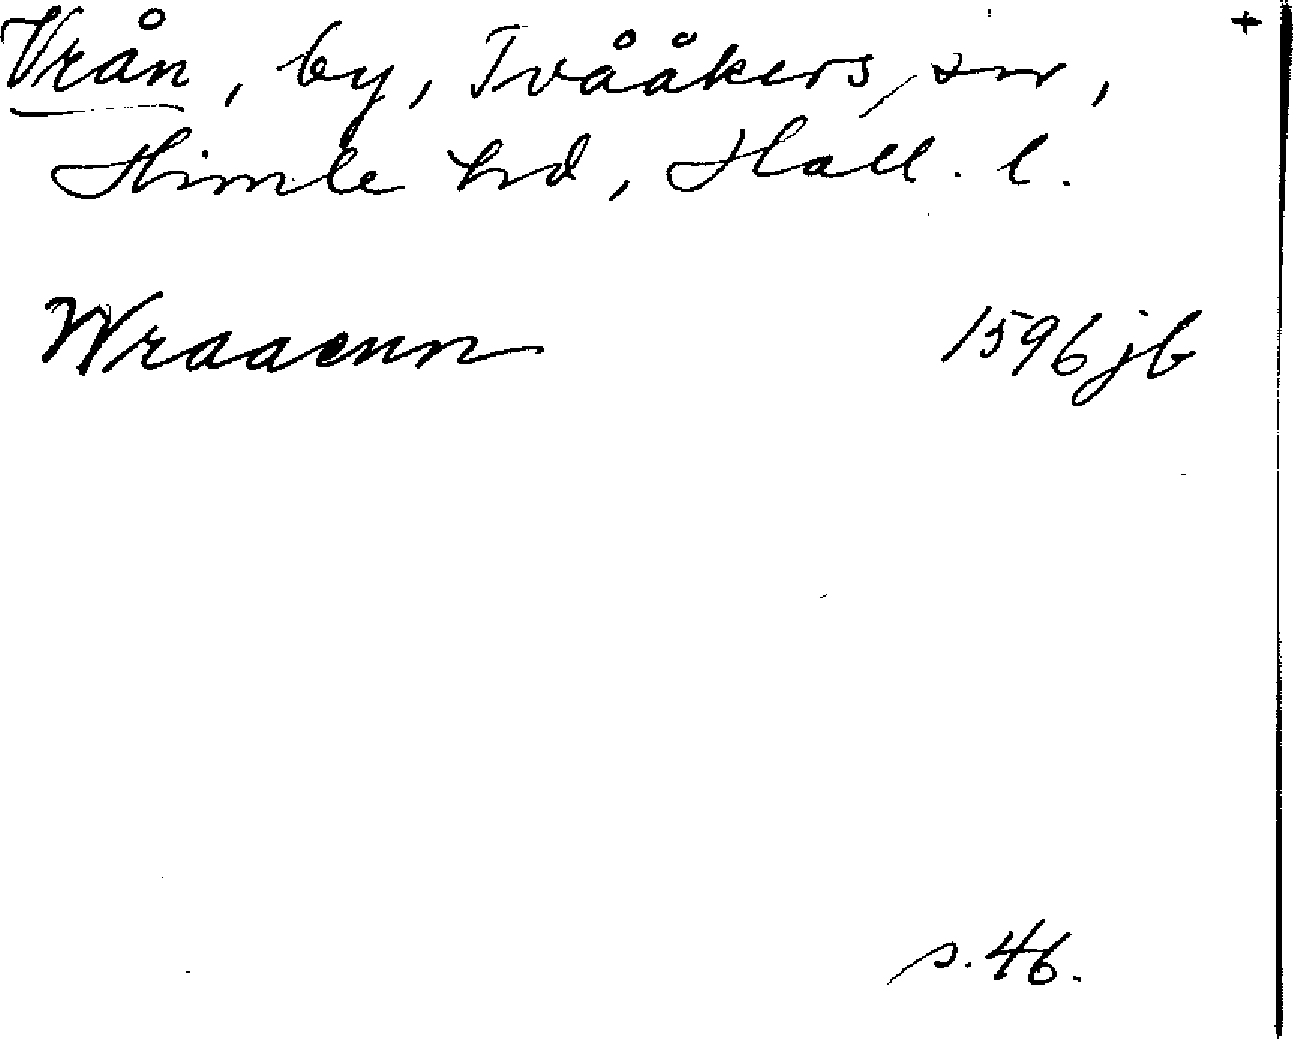 Vrån, by, Tvååkers sn, +
Himle hd, Hall. l.
Wraaenn 1596 jb
s. 46.